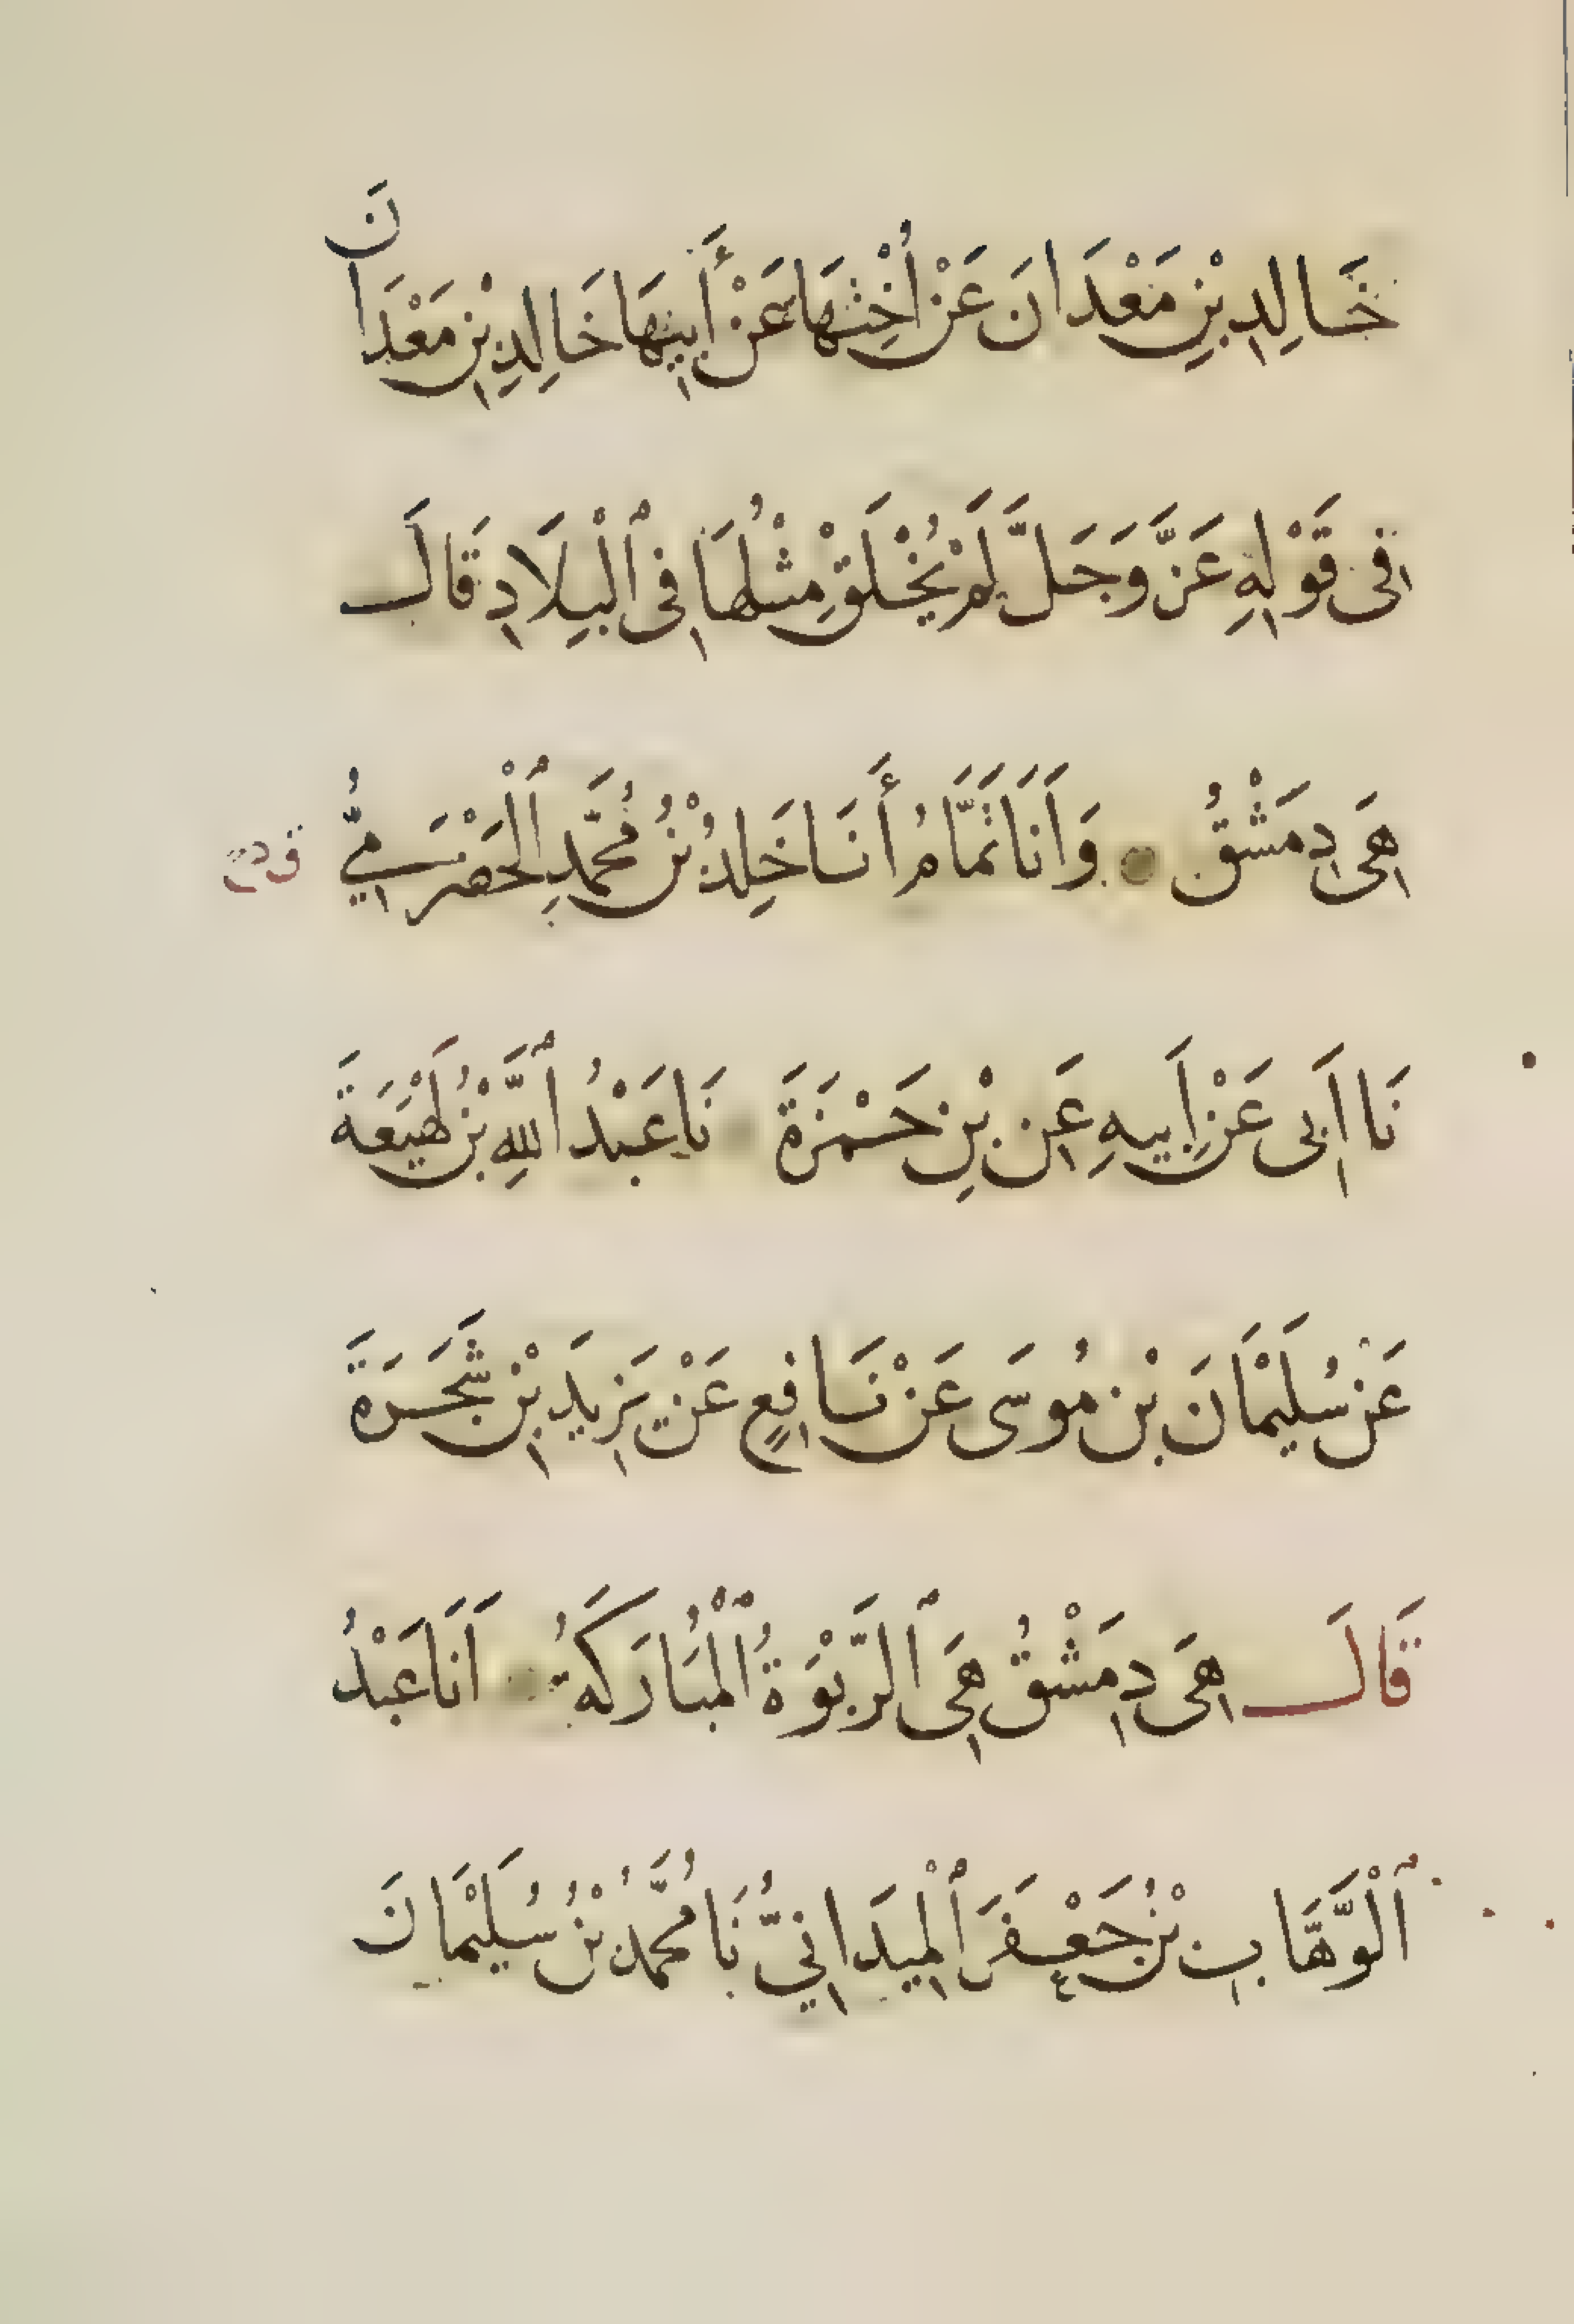 خَالِدِ بْنِ مَعْدَانَ عَنْ أُخْتِهَا عَنْ أَبِيهَا خَالِدِ بْنِ مَعْدَانَ
فِى قَوْلِهِ عَزَّ وَجَلَّ لَمْ يُخْلَقْ مِثْلُهَا فِى ٱلْبِلَادِ قَالَ
هِىَ دِمَشْقُ وَأَنَا تَمَّامُ أَنَا خَلِدُ بْنُ مُحَمَّدِ ٱلْحَضْرَمِيُّ
نَا أَبِى عَنْ أَبِيهِ عَنِ بْنِ حَمْزَةَ نَا عَبْدُ ٱللَّهِ بْنُ لَهِيْعَةَ
عَنْ سُلَيْمَانَ بْنِ مُوسَى عَنْ نَافِعٍ عَنْ يَزِيدَ بْنِ شَجَرَةَ
قَالَ هِىَ دِمَشْقُ هِىَ ٱلرَّبْوَةُ ٱلْمُبَارَكَةُ أَنَا عَبْدُ
ٱلْوَهَّابِ بْنُ جَعْفَرَ ٱلْمِيدَانِيُّ نَا مُحَمَّدُ بْنُ سُلَيْمَانَ